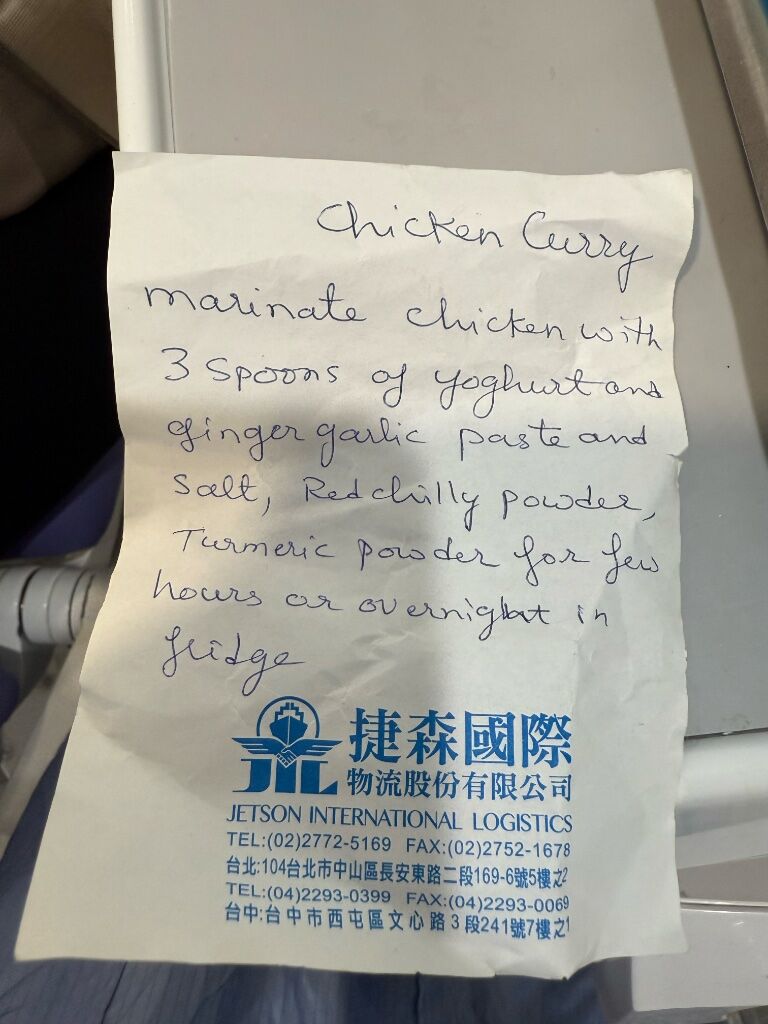 Chicken Curry
marinate chicken with
3 Spoons of yoghurt and
ginger garlic paste and
Salt, Red chilly powder,
Turmeric powder for few
hours or overnight in
fridge
JIL
捷森國際
物流股份有限公司
JETSON INTERNATIONAL LOGISTICS
TEL:(02)2772-5169 FAX:(02)2752-1678
台北:104台北市中山區長安東路二段169-6號5樓之2
TEL:(04)2293-0399 FAX:(04)2293-0069
台中:台中市西屯區文心路3段241號7樓之1